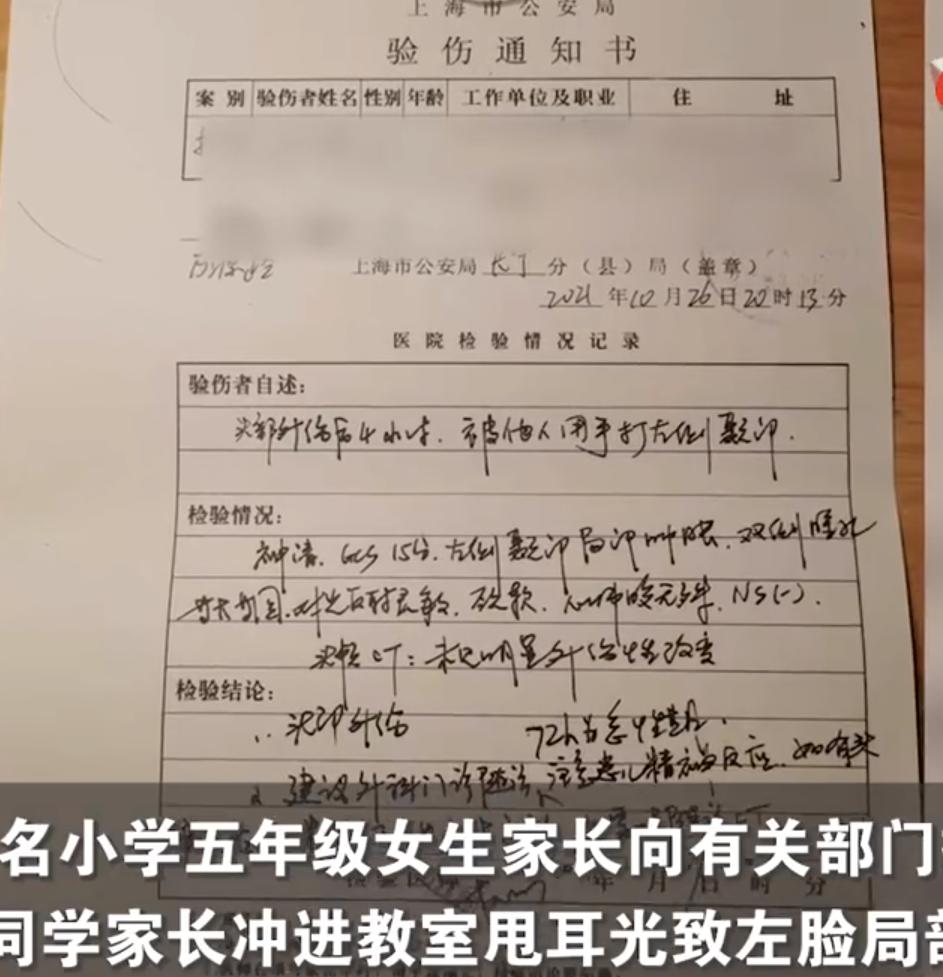 上海市公安局
验伤通知书
案别 验伤者姓名 性别 年龄 工作单位及职业 住址
上海市公安局长宁分(县)局(盖章)
2021年10月26日20时13分
医院检验情况记录
验伤者自述:
头部外伤后4小时.被他人用手打左侧面部.
检验情况:
神清.GCS 15分.左侧面部局部肿胀.双侧瞳孔
等大等圆.对光反射灵敏.颈软.NS(-).
头颅CT:未见明显外伤性改变
检验结论:
1. 头部外伤 72h为急性期.
2 建议外科门诊随诊.注意患儿精神及反应.如有
名小学五年级女生家长向有关部门
年 月 日 时 分
同学家长冲进教室甩耳光致左脸局部